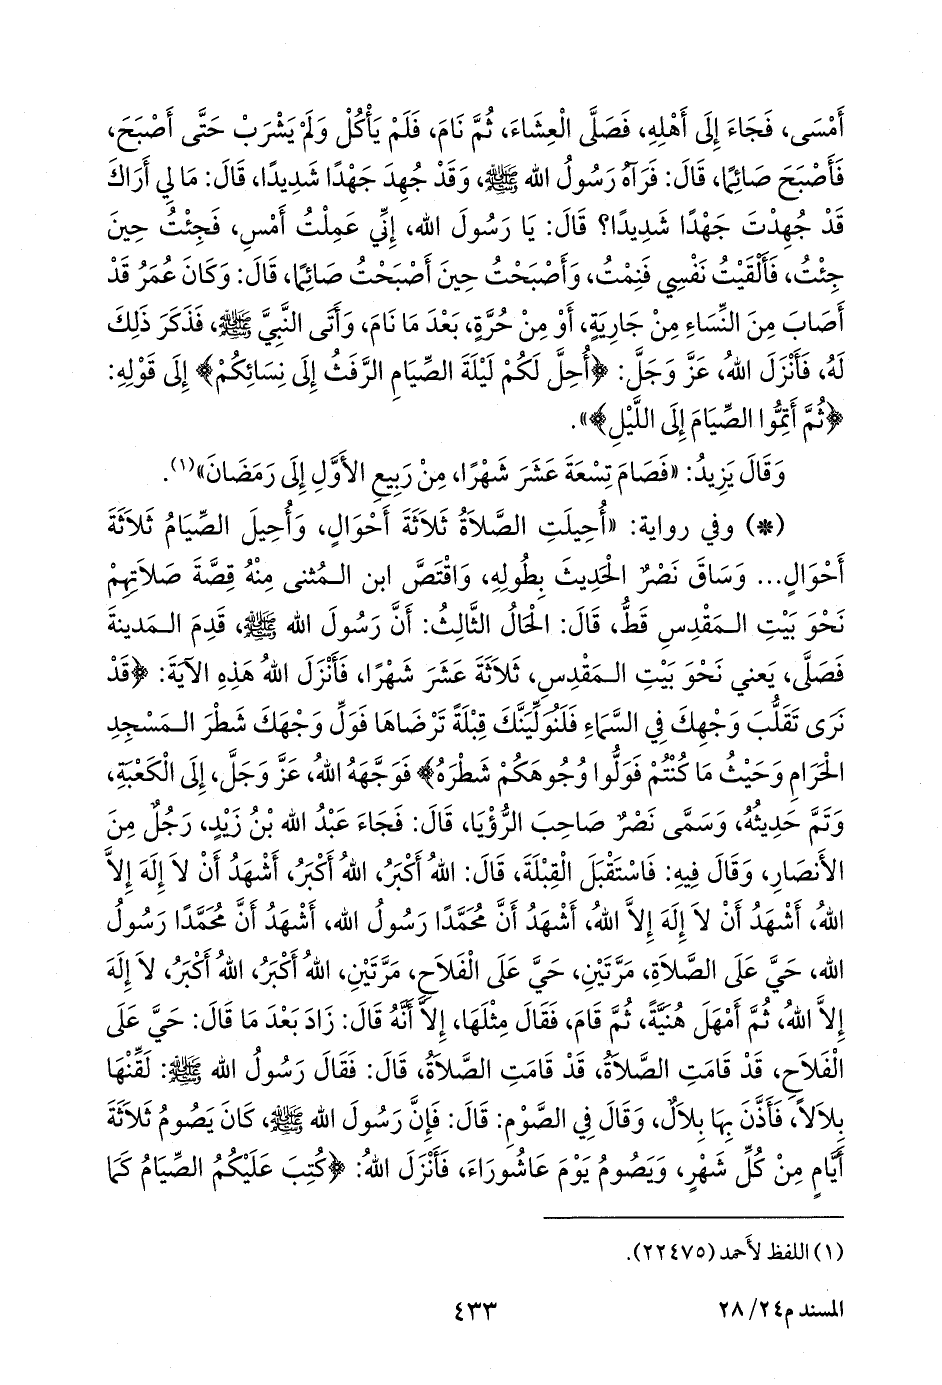 أَمْسَى، فَجَاءَ إِلَى أَهْلِهِ، فَصَلَّى الْعِشَاءَ، ثُمَّ نَامَ، فَلَمْ يَأْكُلْ وَلَمْ يَشْرَبْ حَتَّى أَصْبَحَ،
فَأَصْبَحَ صَائِمًا، قَالَ: فَرَآهُ رَسُولُ الله ﷺ، وَقَدْ جُهِدَ جَهْدًا شَدِيدًا، قَالَ: مَا لِي أَرَاكَ
قَدْ جُهِدْتَ جَهْدًا شَدِيدًا؟ قَالَ: يَا رَسُولَ الله، إِنِّي عَمِلْتُ أَمْسِ، فَجِئْتُ حِينَ
جِئْتُ، فَأَلْقَيْتُ نَفْسِي فَنِمْتُ، وَأَصْبَحْتُ حِينَ أَصْبَحْتُ صَائِمًا، قَالَ: وَكَانَ عُمَرُ قَدْ
أَصَابَ مِنَ النِّسَاءِ مِنْ جَارِيَةٍ، أَوْ مِنْ حُرَّةٍ، بَعْدَ مَا نَامَ، وَأَتَى النَّبِيَّ ﷺ، فَذَكَرَ ذَلِكَ
لَهُ، فَأَنْزَلَ اللهُ، عَزَّ وَجَلَّ: ﴿أُحِلَّ لَكُمْ لَيْلَةَ الصِّيَامِ الرَّفَثُ إِلَى نِسَائِكُمْ﴾ إِلَى قَوْلِهِ:
﴿ثُمَّ أَتِمُّوا الصِّيَامَ إِلَى اللَّيْلِ﴾».
وَقَالَ يَزِيدُ: «فَصَامَ تِسْعَةَ عَشَرَ شَهْرًا، مِنْ رَبِيعِ الأَوَّلِ إِلَى رَمَضَانَ»(١).
(*) وفي رواية: «أُحِيلَتِ الصَّلاَةُ ثَلاَثَةَ أَحْوَالٍ، وَأُحِيلَ الصِّيَامُ ثَلاَثَةَ
أَحْوَالٍ... وَسَاقَ نَصْرٌ الْحَدِيثَ بِطُولِهِ، وَاقْتَصَّ ابن الـمُثنى مِنْهُ قِصَّةَ صَلاَتِهِمْ
نَحْوَ بَيْتِ الـمَقْدِسِ قَطُّ، قَالَ: الْحَالُ الثَّالِثُ: أَنَّ رَسُولَ الله ﷺ، قَدِمَ الـمَدينةَ
فَصَلَّى، يَعني نَحْوَ بَيْتِ الـمَقْدِسِ، ثَلاَثَةَ عَشَرَ شَهْرًا، فَأَنْزَلَ اللهُ هَذِهِ الآيَةَ: ﴿قَدْ
نَرَى تَقَلُّبَ وَجْهِكَ فِي السَّمَاءِ فَلَنُوَلِّيَنَّكَ قِبْلَةً تَرْضَاهَا فَوَلِّ وَجْهَكَ شَطْرَ الـمَسْجِدِ
الْحَرَامِ وَحَيْثُ مَا كُنْتُمْ فَوَلُّوا وُجُوهَكُمْ شَطْرَهُ﴾ فَوَجَّهَهُ اللهُ، عَزَّ وَجَلَّ، إِلَى الْكَعْبَةِ،
وَتَمَّ حَدِيثُهُ، وَسَمَّى نَصْرٌ صَاحِبَ الرُّؤْيَا، قَالَ: فَجَاءَ عَبْدُ الله بْنُ زَيْدٍ، رَجُلٌ مِنَ
الأَنصَارِ، وَقَالَ فِيهِ: فَاسْتَقْبَلَ الْقِبْلَةَ، قَالَ: اللهُ أَكْبَرُ، اللهُ أَكْبَرُ، أَشْهَدُ أَنْ لاَ إِلَهَ إِلاَّ
اللهُ، أَشْهَدُ أَنْ لاَ إِلَهَ إِلاَّ اللهُ، أَشْهَدُ أَنَّ مُحَمَّدًا رَسُولُ الله، أَشْهَدُ أَنَّ مُحَمَّدًا رَسُولُ
الله، حَيَّ عَلَى الصَّلاَةِ، مَرَّتَيْنِ، حَيَّ عَلَى الْفَلاَحِ، مَرَّتَيْنِ، اللهُ أَكْبَرُ، اللهُ أَكْبَرُ، لاَ إِلَهَ
إِلاَّ اللهُ، ثُمَّ أَمْهَلَ هُنَيَّةً، ثُمَّ قَامَ، فَقَالَ مِثْلَهَا، إِلاَّ أَنَّهُ قَالَ: زَادَ بَعْدَ مَا قَالَ: حَيَّ عَلَى
الْفَلاَحِ، قَدْ قَامَتِ الصَّلاَةُ، قَدْ قَامَتِ الصَّلاَةُ، قَالَ: فَقَالَ رَسُولُ الله ﷺ: لَقِّنْهَا
بِلاَلاً، فَأَذَّنَ بِهَا بِلاَلٌ، وَقَالَ فِي الصَّوْمِ: قَالَ: فَإِنَّ رَسُولَ الله ﷺ، كَانَ يَصُومُ ثَلاَثَةَ
أَيَّامٍ مِنْ كُلِّ شَهْرٍ، وَيَصُومُ يَوْمَ عَاشُورَاءَ، فَأَنْزَلَ اللهُ: ﴿كُتِبَ عَلَيْكُمُ الصِّيَامُ كَمَا
(١) اللفظ لأَحمد (٢٢٤٧٥).
المسند م٢٤/ ٢٨
٤٣٣